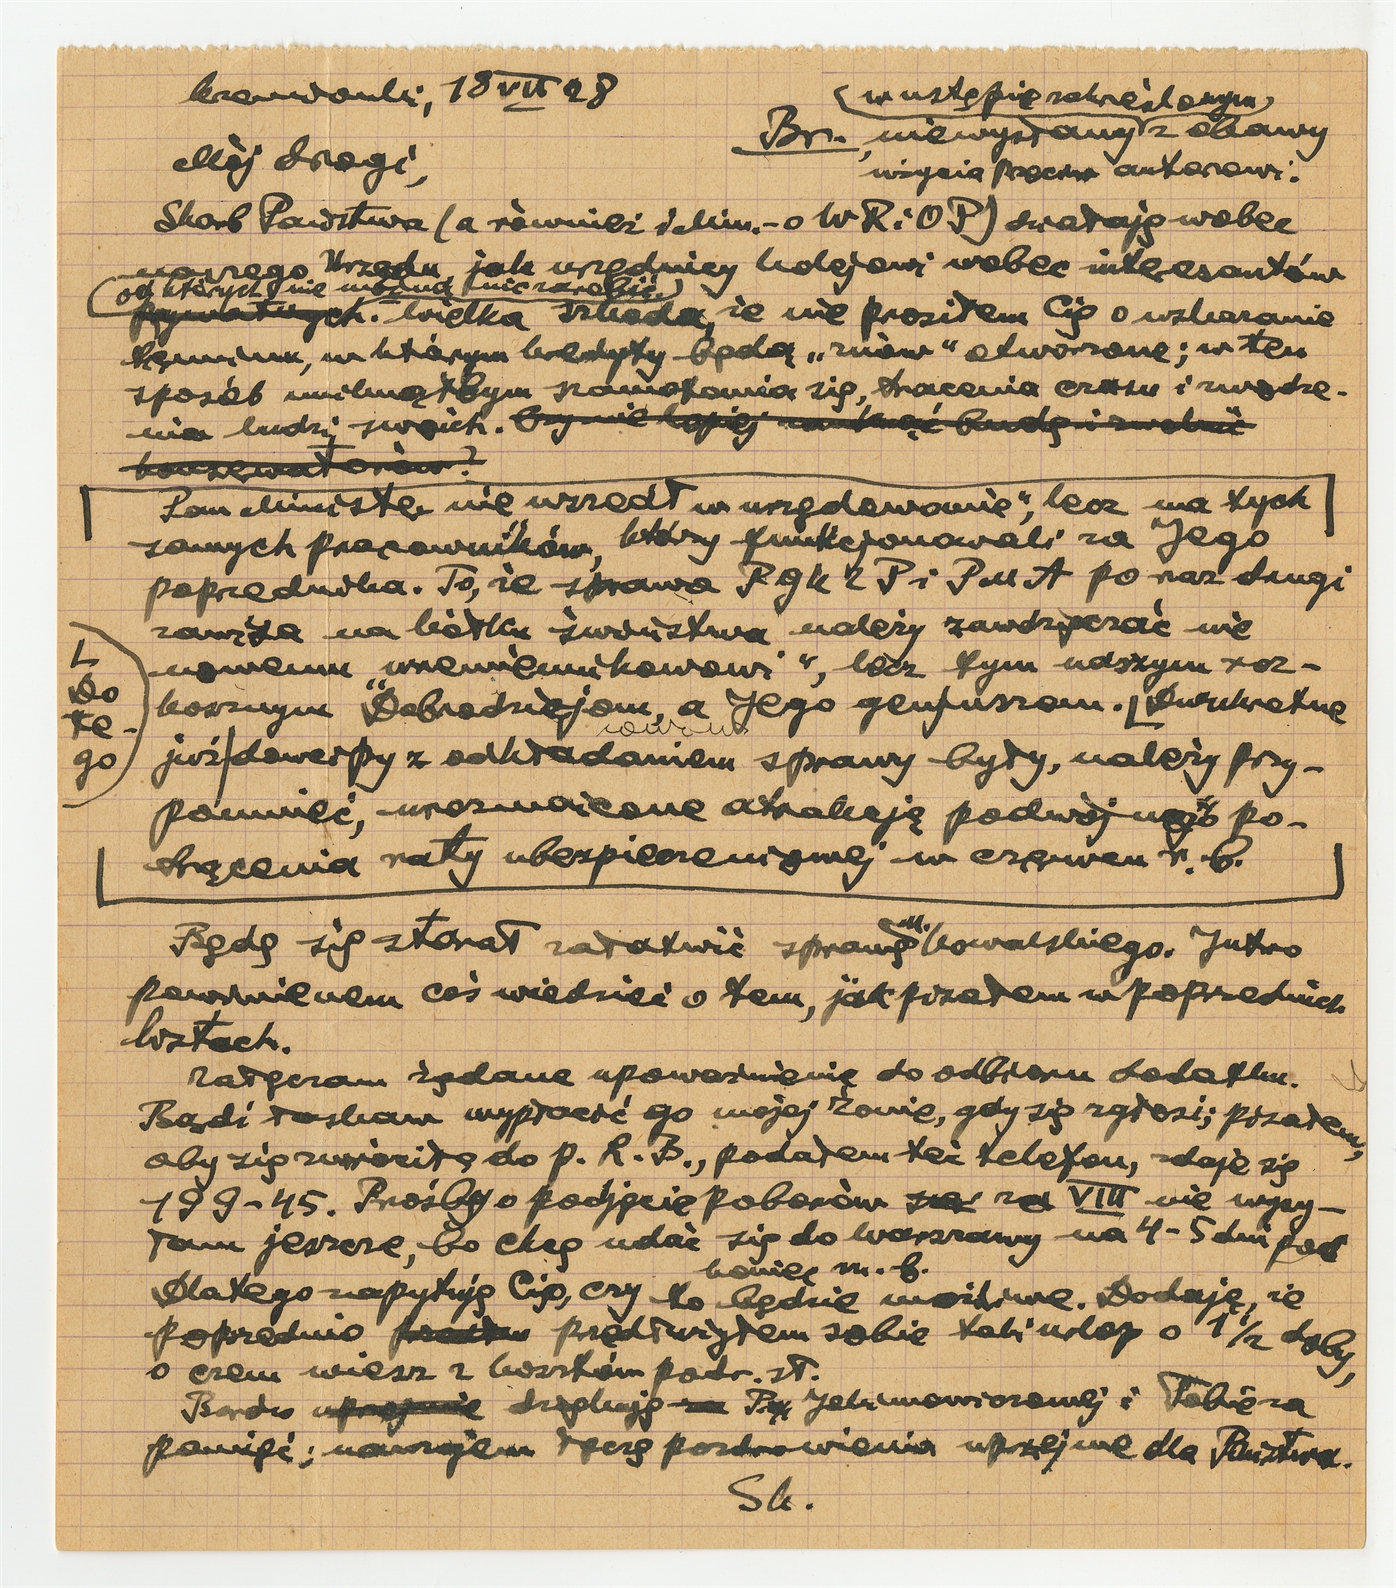 18 VII 28
(w ustępie zakreślonym)
Br. niewysłany z obawy
użycia przeciw autorowi.
Mój drogi,
Skarb Państwa (a również i Min.-o W R i O P) działają wobec
naszego Urzędu, jak urzędnicy kolejowi wobec interesantów
(od których nie można nic zarobić)
prywatnych. Wielka szkoda, że nie prosiłem Cię o wskazanie
terminu, w którym kredyty będą „znów“ otworzone; w ten
sposób uniknąłbym szamotania się, tracenia czasu i zwodze-
nia ludzi swoich. Czy nie lepiej zamknąć budę i zwolnić
konserwatorów?
Pan Minister nie wszedł „w urzędowanie“, lecz ma tych
samych pracowników, którzy funkcjonowali za Jego
poprzednika. To, że sprawa P. g k Z P i P M A po raz drugi
zawisła na kołku świństwa należy zawdzięczać nie
nowemu „ “, lecz tym naszym roz-
kosznym „Dobrodziejom, a Jego genjuszom. L Dwukrotne
L
Do
te-
go
już dowcipy z odkładaniem sprawy były, należy przy-
pomnieć, urozmaicone atrakcją podwójnego po-
trącenia raty ubezpieczeniowej w czerwcu r. b.
Będę się starał załatwić sprawę M. Kowalskiego. Jutro
powinienem coś wiedzieć o tem, jak pisałem w poprzednich
listach.
Załączam żądane upoważnienie do odbioru dodatku.
Bądź łaskaw wypłacić go mojej żonie, gdy się zgłosi; pisałem,
aby się zwróciła do p. R. B., podałem też telefon, zdaje się
199-45. Prośby o podjęcie poborów za VIII nie wysy-
łam jeszcze, bo chcę udać się do Warszawy na 4-5 dni pod
koniec m. b.
Dlatego zapytuję Cię, czy to będzie możliwe. Dodaję, że
poprzednio przedłużyłem sobie taki urlop o 1 1/2 doby,
o czem wiesz z kosztów podr. sł.
Bardzo uprzejmie dziękuję za P. Jakimowiczowej i Tobie za
pamięć; nawzajem łączę pozdrowienia uprzejme dla Państwa.
Sk.